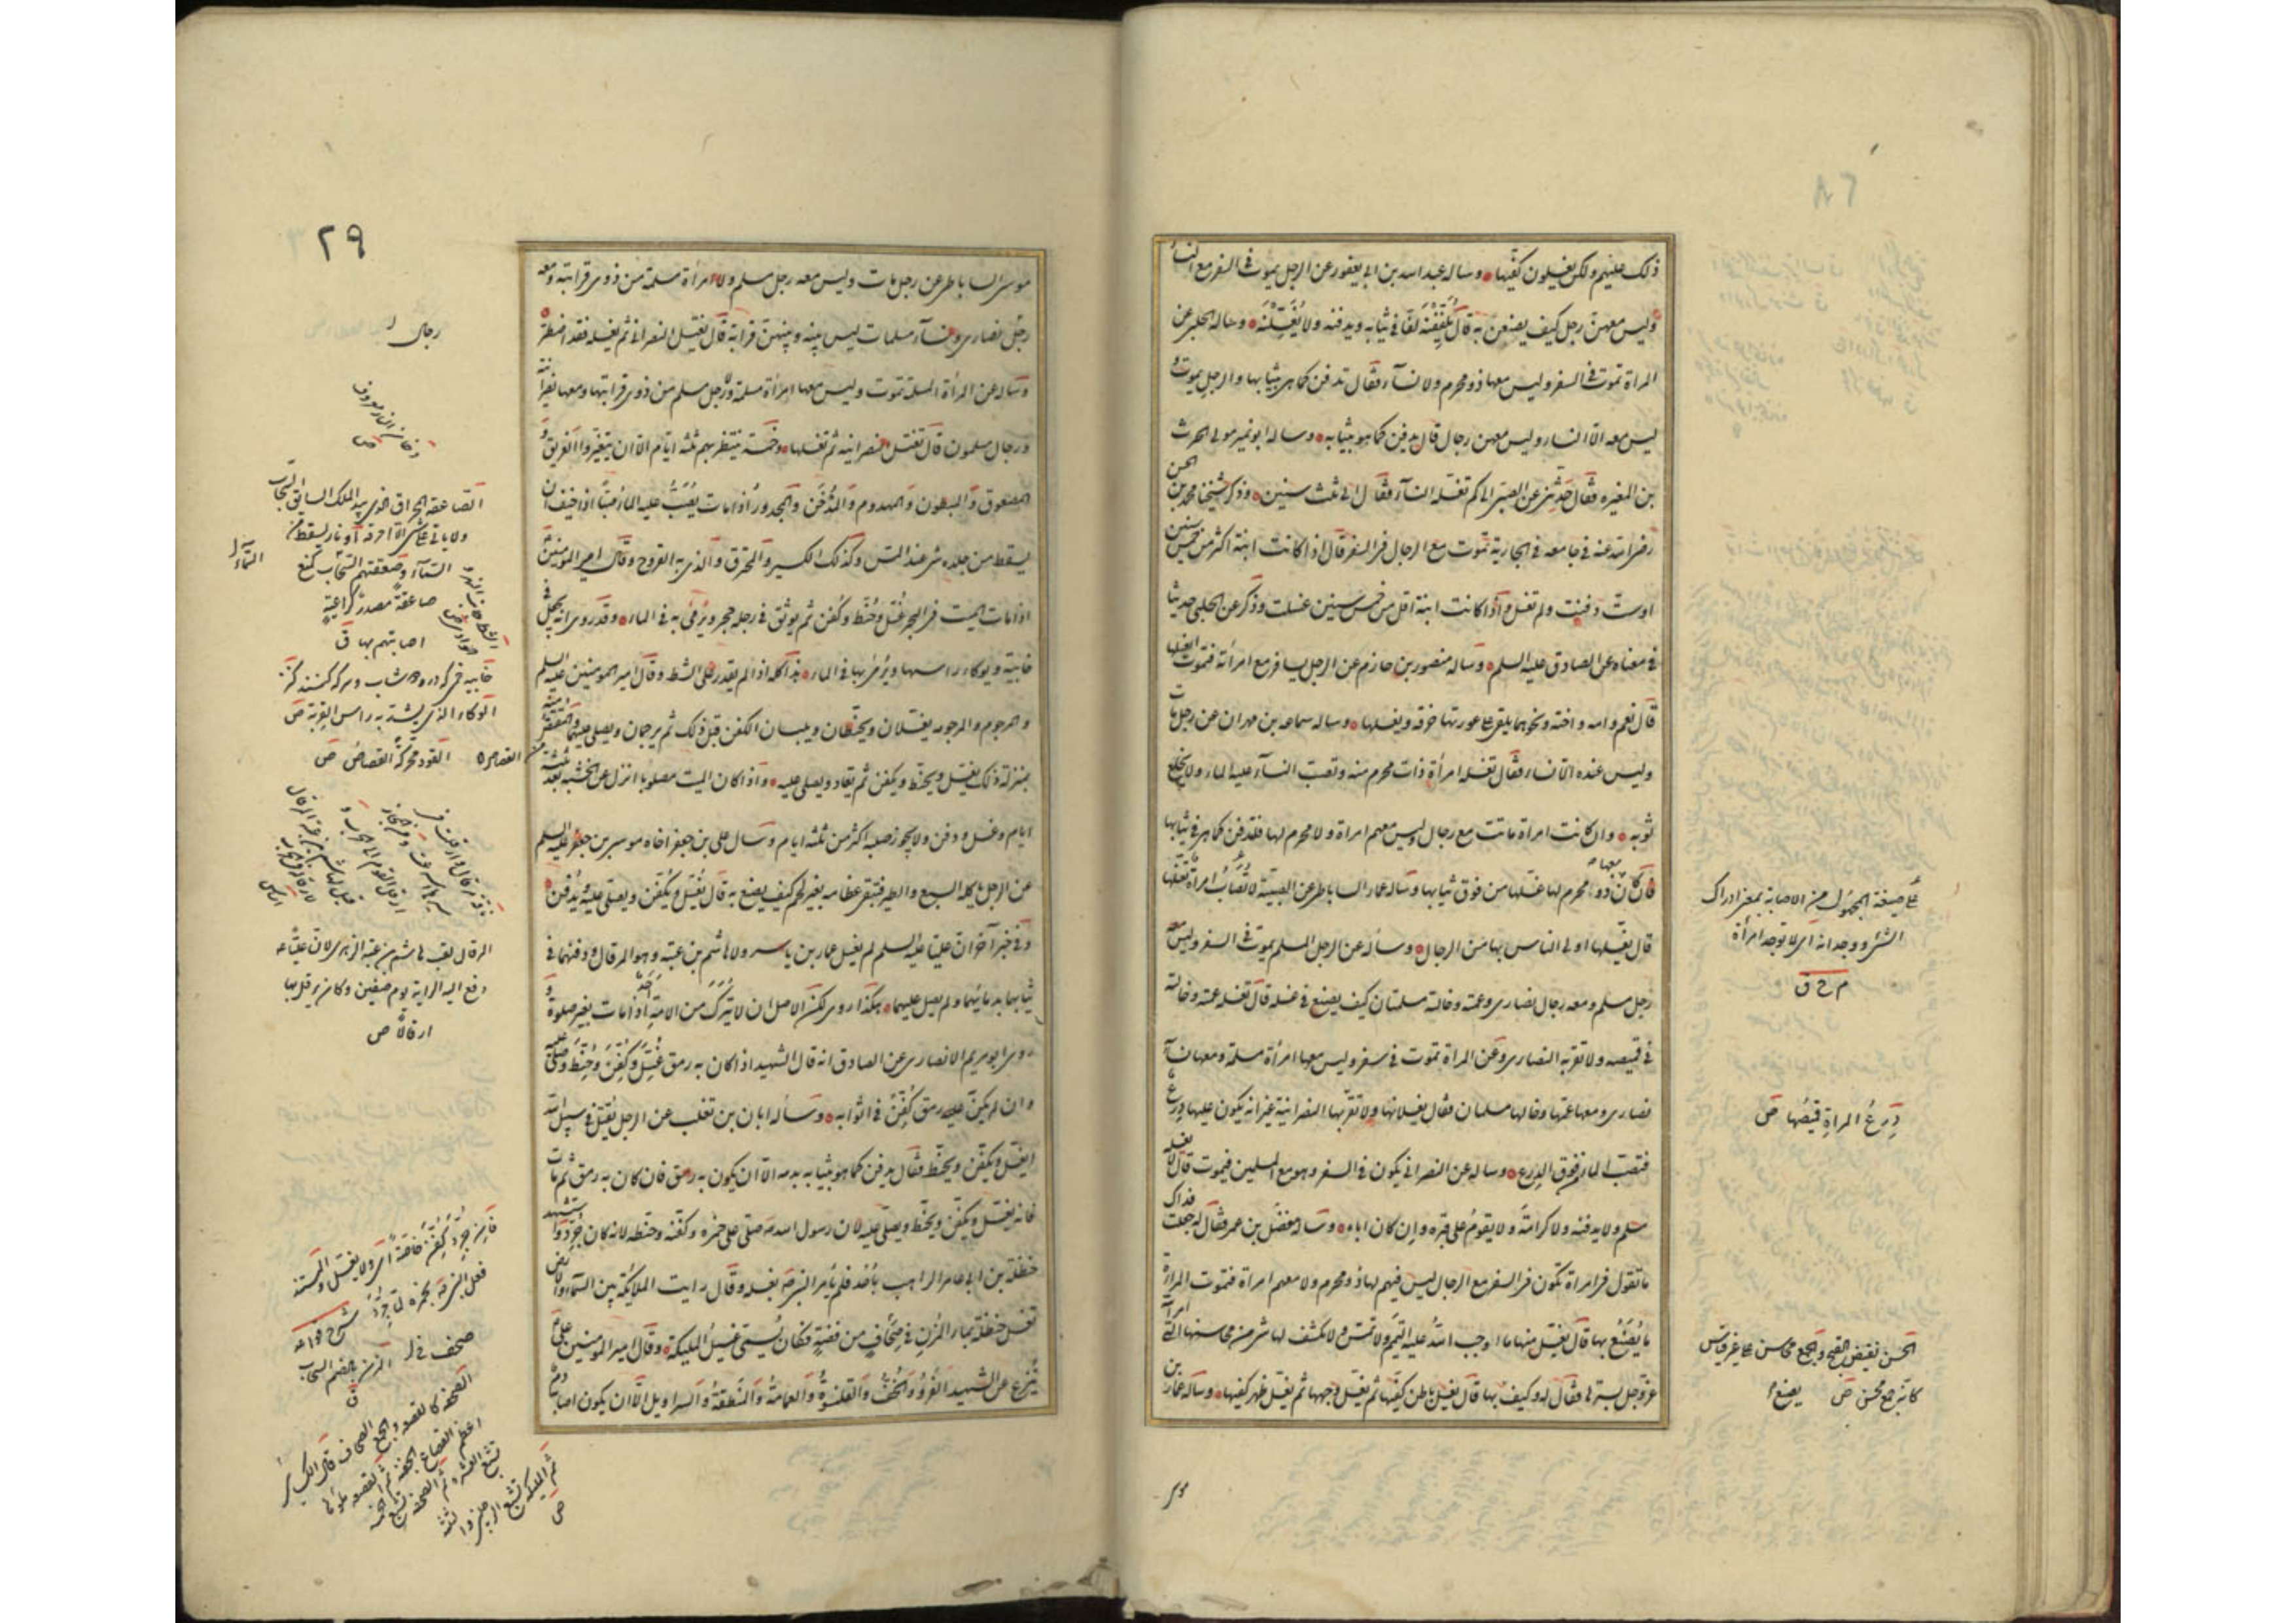 ذلك عليهم ولكن يغسلون كفيها وساله عبد الله بن ابي يعفور عن الرجل يموت في السفر مع النساء
وليس معهن رجل كيف يصنعن به قال يلففنه لفا في ثيابه ويدفنه ولا يغسلنه وساله الحلبي عن
المراة تموت في السفر وليس معها ذو محرم ولا نساء فقال تدفن كما هي بثيابها والرجل يموت و
ليس معه الا النساء وليس معهن رجال قال يدفن كما هو بثيابه وساله ابو نمير مولى الحرث
بن المغيره فقال حدثني عن الصبي الى كم تغسله النساء فقال الى ثلث سنين وذكر شيخنا محمد بن الحسن
رضي الله عنه في جامعه في الجارية تموت مع الرجال في السفر قال اذا كانت ابنة اكثر من خمس سنين
او ست دفنت ولم تغسل واذا كانت ابنة اقل من خمس سنين غسلت وذكر عن الحلبي حديثا
في معناه عن الصادق عليه السلم وساله منصور بن حازم عن الرجل يسافر مع امرأته فتموت ايغسلها
قال نعم وامه واخته ونحوهما يلقي على عورتها خرقه ويغسلها وساله سماعه بن مهران عن رجل مات
وليس عنده الا نساء فقال تغسله امرأة ذات محرم منه وتصب النساء عليه الماء ولا يخلع
ثوبه وان كانت امراة ماتت مع رجال وليس معهم امراة ولا محرم لها فلتدفن كما هي في ثيابها
فان كان معها ذو محرم لها غسلها من فوق ثيابها وساله عمار الساباطي عن الصبية لا تصاب امرأة تغسلها
قال يغسلها اولى الناس بها من الرجال وسأله عن الرجل المسلم يموت في السفر وليس معه
رجل مسلم ومعه رجال نصارى وعمته وخالته مسلمتان كيف يصنع في غسله قال تغسله عمته وخالته
في قميصه ولا تقربه النصارى وعن المراة تموت في سفر وليس معها امرأة مسلمة ومعها نساء
نصارى ومعها عمها وخالها مسلمان فقال يغسلانها ولا تقربها النصرانية غير انه يكون عليها درع
فتصب الماء من فوق الدرع وساله عن النصراني يكون في السفر وهو مع المسلمين فيموت قال لا يغسله
مسلم ولا يدفنه ولا كرامة ولا يقوم على قبره وان كان اباه وساله مفضل بن عمر فقال له جعلت فداك
ما تقول في امراة تكون في السفر مع الرجال ليس فيهم لها ذو محرم ولا معهم امراة فتموت المراة
ما يصنع بها قال يغسل منها ما اوجب الله عليه التيمم ولا تمس ولا يكشف لها شيء من محاسنها التي امر الله
عز وجل بستره فقال له وكيف بها قال يغسل باطن كفيها ثم يغسل وجهها ثم يغسل ظهر كفيها وساله عمار بن
على صيغة المجهول من الاصابة بمعنى ادراك
الشيء ووجدانه اى لا توجد امرأة
م ح ق
درع المراة قميصها ص
الحسن نقيض القبح والجمع محاسن على غير قياس
كانه جمع محسن ص
يصنع
موسى
٢٩
موسى الساباطي عن رجل مات وليس معه رجل مسلم ولا امرأة مسلمة من ذوي قرابته ومعه
رجل نصارى ونساء مسلمات ليس بينه وبينهن قرابة قال يغتسل النصراني ثم يغسله فقد اضطر
وساله عن المرأة المسلمة تموت وليس معها امرأة مسلمة ولا رجل مسلم من ذوي قرابتها ومعها نصرانية
ورجال مسلمون قال تغتسل النصرانيه ثم تغسلها وخمسة ينتظر بهم ثلثه ايام الا ان يتغيروا الغريق و
المصعوق والمبطون والمهدوم والمدخن والمجدور اذا مات يصب عليه الماء صبا اذا خيف ان
يسقط من جلده شيء عند المس وكذلك الكسير والمحترق والذي به القروح وقال امير المومنين
اذا مات الميت في البحر غسل وحنط وكفن ثم يوثق في رجله حجر ويرمى به في الماء وقد روى انه يجعل في
خابية ويوكاء راسها ويرمى بها في الماء هذا كله اذا لم يقدر على الشط وقال امير المومنين عليه السلم
والمرجوم والمرجومه يغتسلان ويحنطان ويلبسان الكفن قبل ذلك ثم يرجمان ويصلى عليهما والمقتص منه
بمنزلة ذلك يغتسل ويحنط ويكفن ثم يقاد ويصلى عليه واذا كان الميت مصلوبا انزل عن الخشبه بعد ثلثه
ايام وغسل ودفن ولا يجوز صلبه اكثر من ثلثه ايام وسال علي بن جعفر اخاه موسى بن جعفر عليه السلم
عن الرجل ياكله السبع والطير فتبقى عظامه بغير لحم كيف يصنع به قال يغسل ويكفن ويصلى عليه ويدفن
وفي خبر آخر ان عليا عليه السلم لم يغسل عمار بن ياسر ولا هاشم بن عتبه وهو المرقال ودفنهما في
ثيابهما بدمائهما ولم يصل عليهما هكذا روى لكن الاصل ان لا يترك احد من الامة اذا مات بغير صلوة و
روى ابو مريم الانصاري عن الصادق انه قال الشهيد اذا كان به رمق غسل وكفن وحنط وصلى عليه
وان لم يكن به رمق كفن في اثوابه وسأله ابان بن تغلب عن الرجل يقتل في سبيل الله
ايغسل ويكفن ويحنط فقال يدفن كما هو بثيابه بدمه الا ان يكون به رمق فان كان به رمق ثم مات
فانه يغسل ويكفن ويحنط ويصلى عليه لان رسول الله صلى على حمزه وكفنه وحنطه لانه كان جرد واستشهد
حنظلة بن ابي عامر الراهب باحد فلم يأمر النبي بغسله وقال رايت الملائكة بين السماء والارض
تغسل حنظلة بماء المزن في صحاف من فضة فكان يسمى غسيل الملئكة وقال امير المومنين
ينزع عن الشهيد الفرو والخف والقلنسوة والعمامة والمنطقة والسراويل الا ان يكون اصابه دم
رجال
دخان النار معروف
ص
السماء
السماء وصعقتهم السماء كمنع
صاعقة مصدر كراعية
اصابتهم بها ق
الوكاء الذي يشد به راس القربة ص
القود محركة القصاص ص
المرقال لقب هاشم بن عتبة الزهري لان عليا ع
دفع اليه الراية يوم صفين وكان يرقل بها
ارقالا ص
صحاف
المزن بالضم السحاب
ق